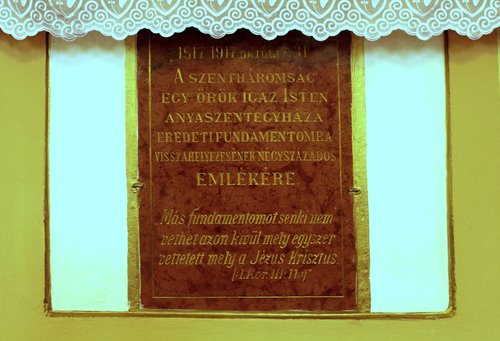 1517 1917 OKTÓBER 31
A SZENTHÁROMSÁG
EGY ÖRÖK IGAZ ISTEN
ANYASZENTEGYHÁZA
EREDETI FUNDAMENTOMRA
VISSZAHELYEZÉSÉNEK NÉGYSZÁZADOS
EMLÉKÉRE
„Más fundamentomot senki nem
vethet azon kívül mely egyszer
vettetett mely a Jézus Krisztus
(I. Kor. III: 11.)"